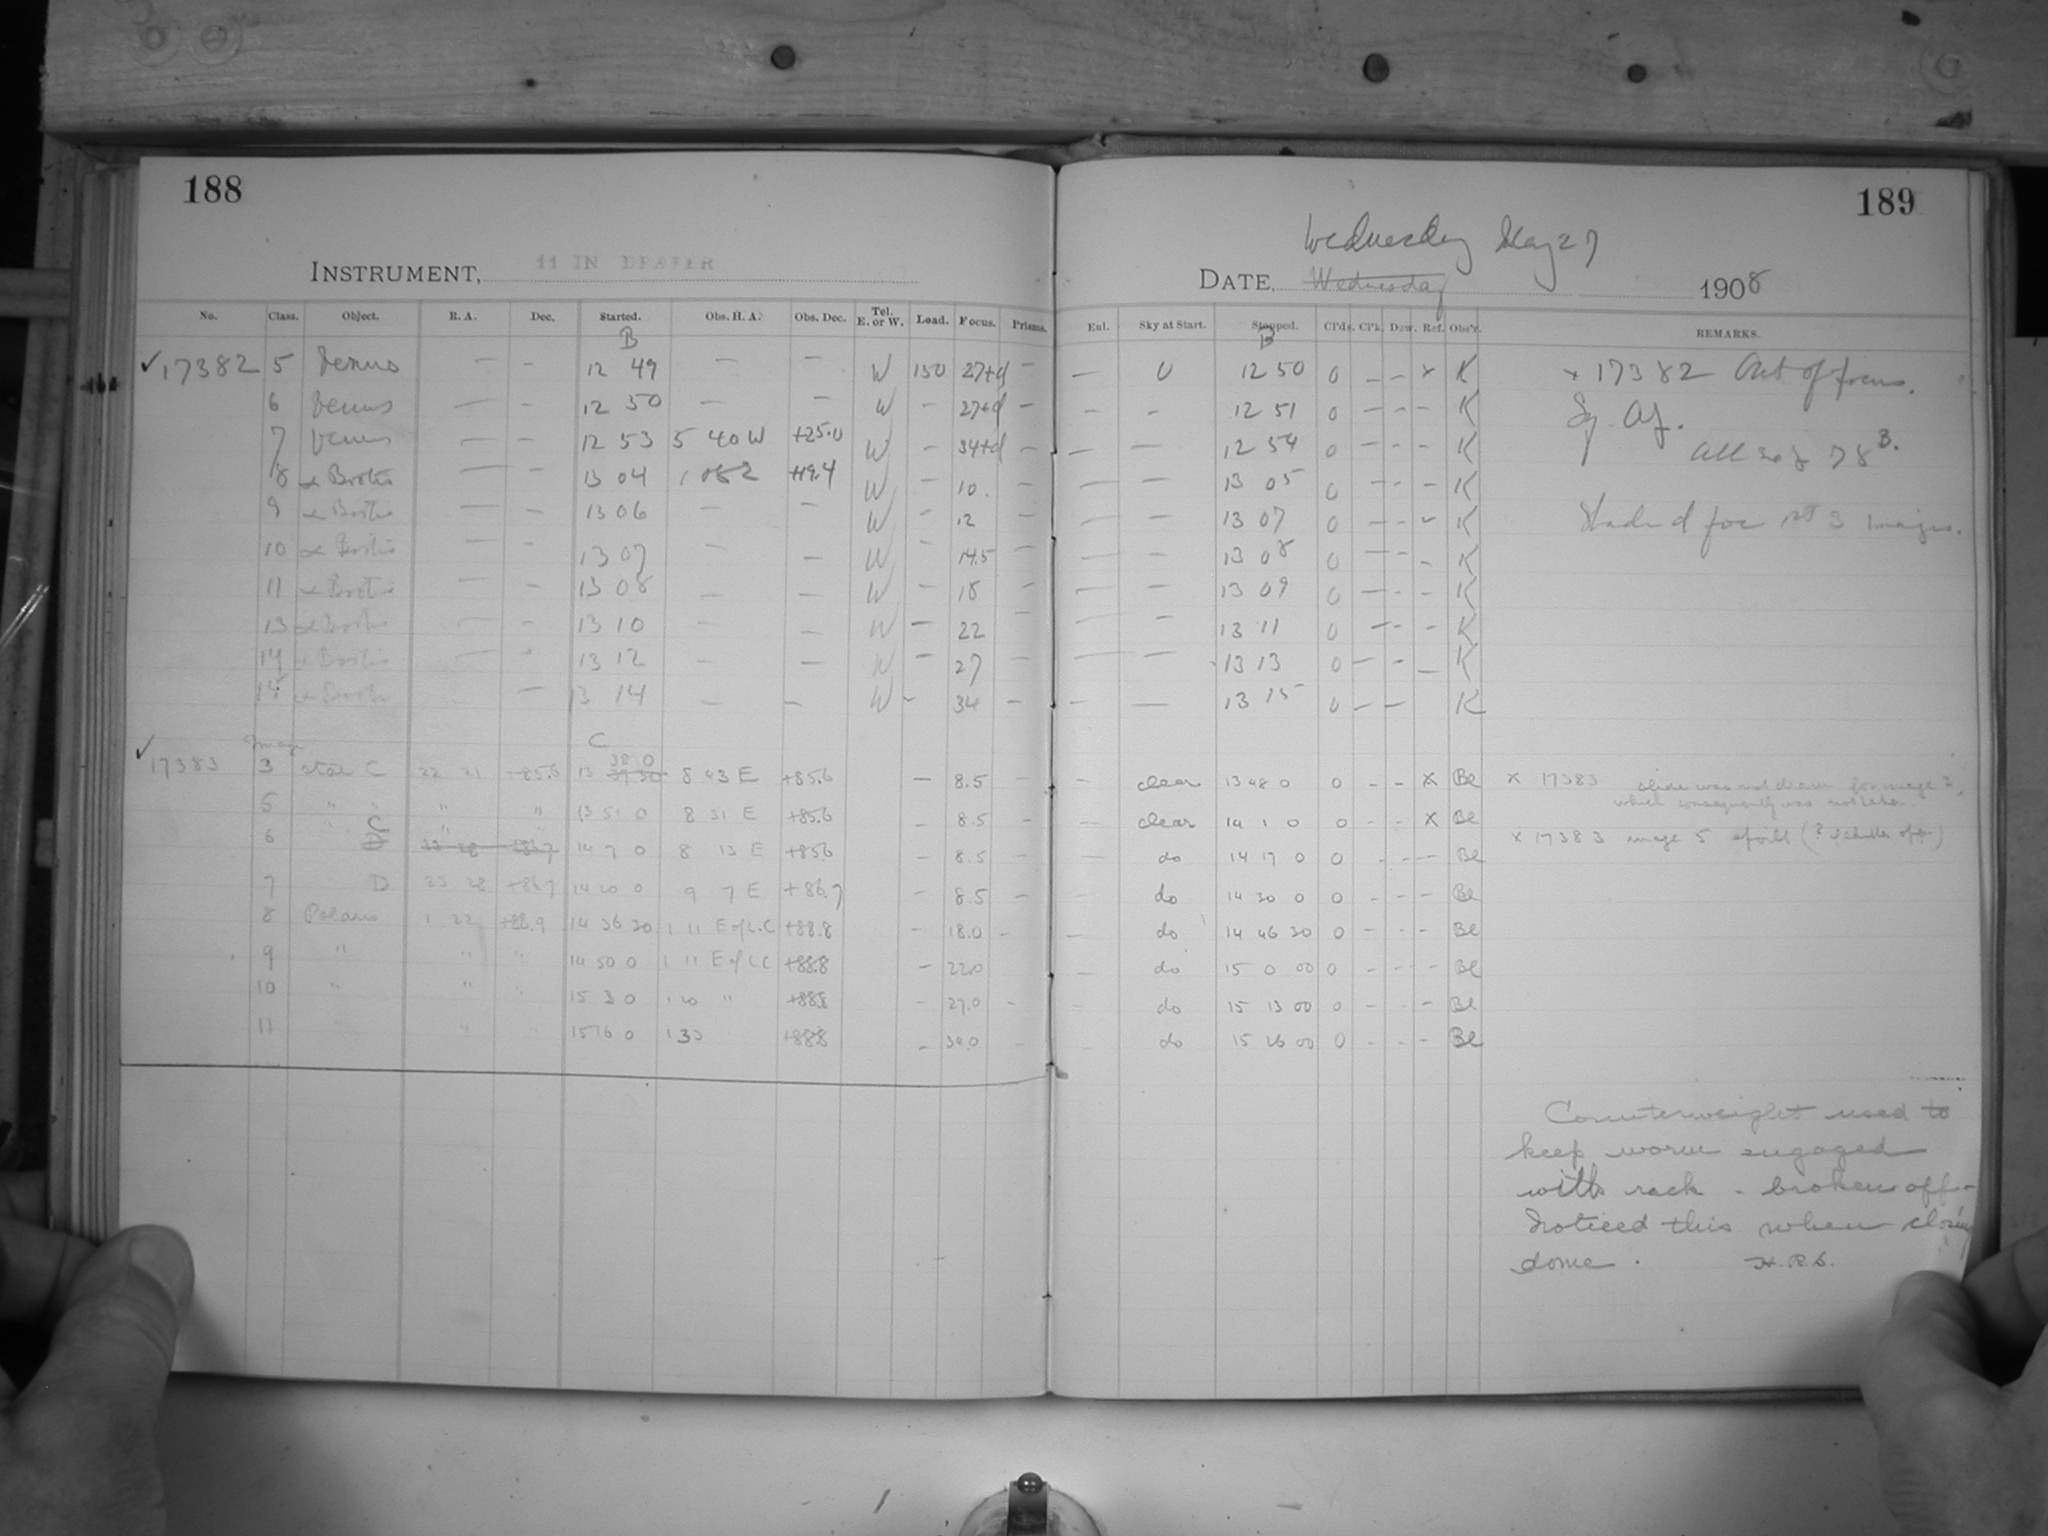 188
189
Wednesday May 27
INSTRUMENT, 11 IN DRAPER
DATE, Wednesday 1908
No. Class. Object. R. A. Dec. Started. Obs. H. A. Obs. Dec. Tel. E. or W. Load. Focus. Prisms. Enl. Sky at Start. Stopped. Cl'ds. Cl'k. Dew. Ref. Obs'r. REMARKS.
B B
✓17382 5 Venus — - 12 49 — — W 150 27+d - — 0 12 50 0 — - x K x 17382 Out of focus.
6 Venus — - 12 50 — — W - 27+d - - - 12 51 0 - - - K
7 Venus — - 12 53 5 40 W +25.0 W - 34+d - — 12 54 0 - - - K
8 α Bootis — - 13 04 +19.4 W - 10. - — — 13 05 0 - - - K
9 α Bootis — - 13 06 — - W - 12 - — — 13 07 0 - - - K
10 α Bootis — - 13 07 — — W - 14.5 - — — 13 08 0 - - - K
11 α Bootis — - 13 08 — — W - 18 - — — 13 09 0 - - - K
13 α Bootis — - 13 10 — — W - 22 - — — 13 11 0 - - - K
14 α Bootis — - 13 12 — — W - 27 - — — 13 13 0 - - - K
15 α Bootis — 13 14 — - W - 34 - - — 13 15 0 - - K
Image C
38 0
✓17383 3 star C 22 21 +85.6 13 37 30 8 43 E +85.6 - 8.5 - clear 13 48 0 0 - - x Be x 17383 slide was not drawn for image 3,
which consequently was not taken.
5 " " " " 13 51 0 8 31 E +85.6 - 8.5 - - clear 14 1 0 0 - - x Be
C
6 " D 23 28 +86.7 14 7 0 8 13 E +85.6 - 8.5 - - do 14 17 0 0 - - - Be x 17383 image 5 spoilt (? shutter open)
7 D 23 28 +86.7 14 20 0 9 7 E +86.7 - 8.5 - - do 14 30 0 0 - - - Be
8 Polaris 1 22 +88.9 14 36 30 1 11 E of L.C +88.8 - 18.0 - - do 14 46 30 0 - - - Be
9 " " " 14 50 0 1 11 E of LC +88.8 - 22.0 - do 15 0 00 0 - - - Be
10 " " 15 3 0 1 20 " +88.8 - 27.0 - - do 15 13 00 0 - - - Be
11 " " 15 16 0 1 33 +88.8 - 34.0 - - do 15 26 00 0 - - - Be
Counterweight used to
keep worm engaged
with rack - broken off -
Noticed this when closing
dome. H.R.S.